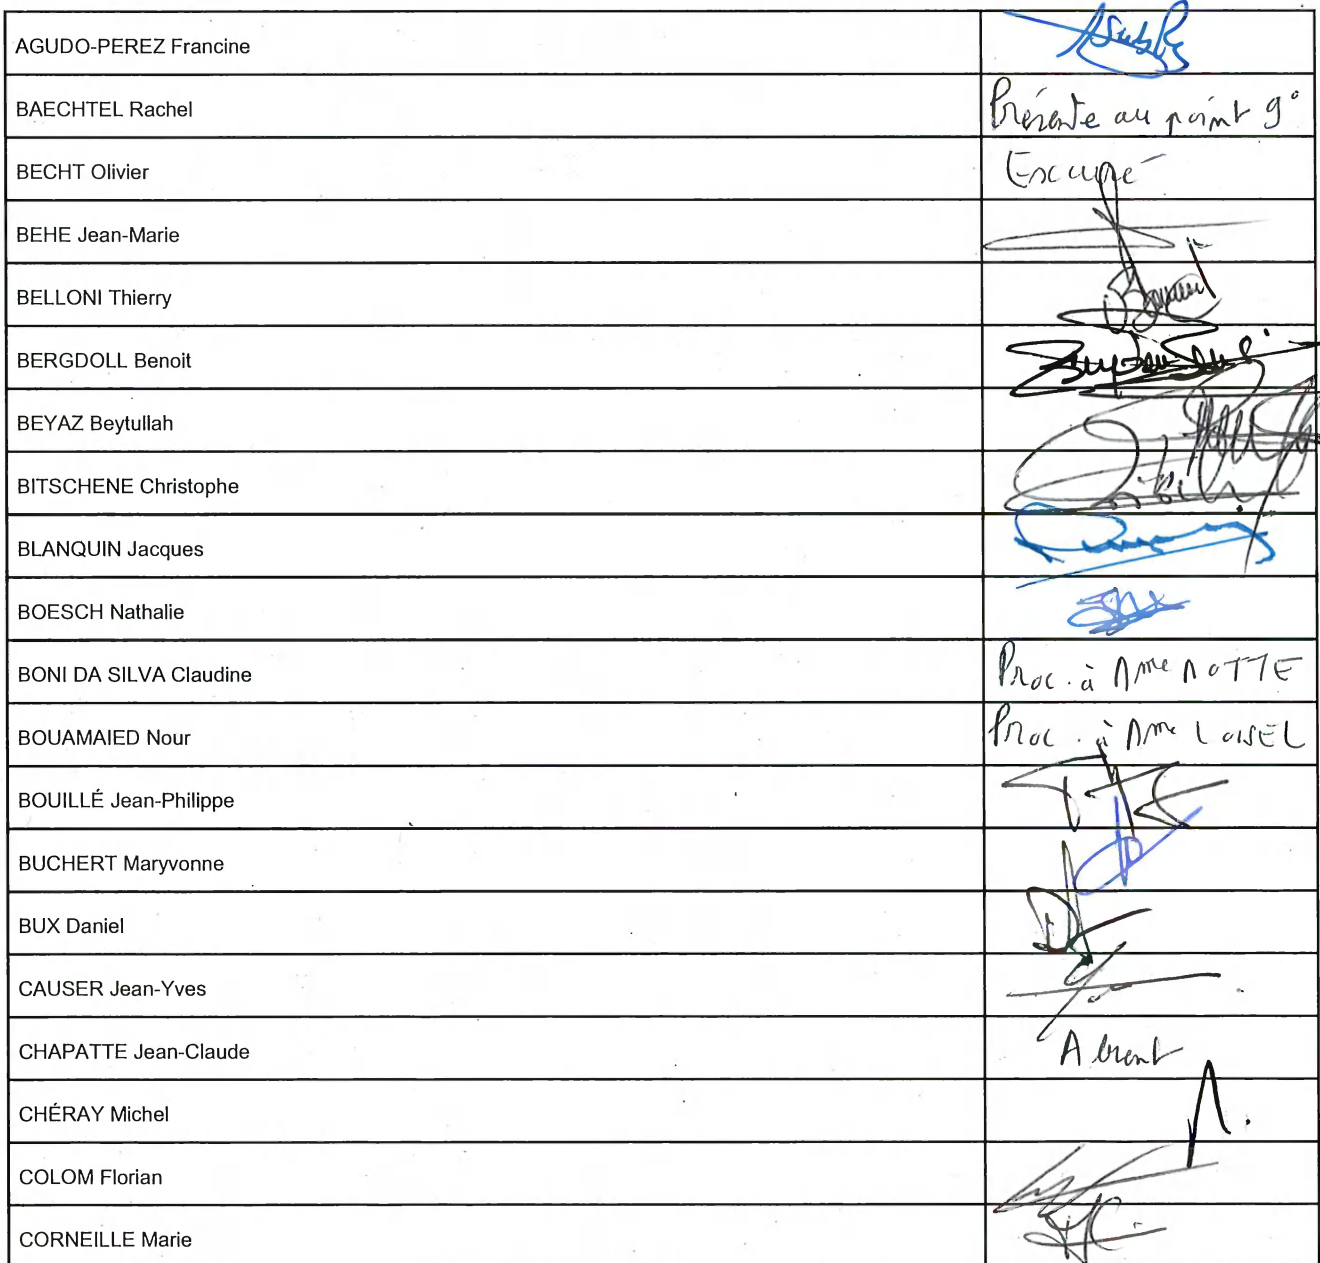 AGUDO-PEREZ Francine
BAECHTEL Rachel Présente au point 9°
BECHT Olivier Excusé
BEHE Jean-Marie
BELLONI Thierry
BERGDOLL Benoit
BEYAZ Beytullah
BITSCHENE Christophe
BLANQUIN Jacques
BOESCH Nathalie
BONI DA SILVA Claudine Proc. à Mme MOTTE
BOUAMAIED Nour Proc. à Mme LOISEL
BOUILLÉ Jean-Philippe
BUCHERT Maryvonne
BUX Daniel
CAUSER Jean-Yves
CHAPATTE Jean-Claude Absent
CHÉRAY Michel
COLOM Florian
CORNEILLE Marie